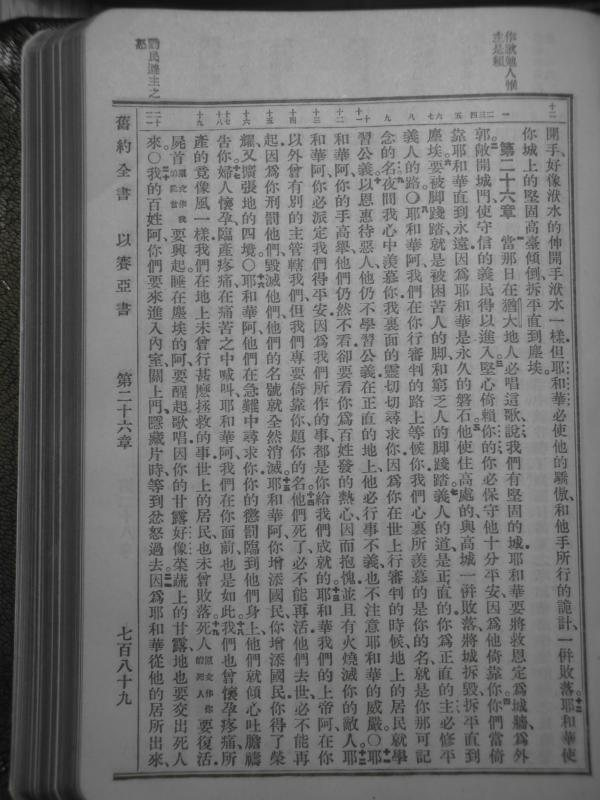 作歌勉人惟主是賴
勖民避主之怒
十二
開手好像洑水的伸開手洑水一樣但耶和華必使他的驕傲和他手所行的詭計一併敗落耶和華使
你城上的堅固高臺傾倒拆平直到塵埃
第二十六章 當那日在猶大地人必唱這歌說我們有堅固的城耶和華要將救恩定為城牆為外
郭敞開城門使守信的義民得以進入堅心倚賴你的你必保守他十分平安因為他倚靠你你們當倚
靠耶和華直到永遠因為耶和華是永久的磐石他使住高處的與高城一併敗落將城拆毀拆平直到
塵埃要被脚踐踏就是被困苦人的脚和窮乏人的脚踐踏義人的道是正直的你為正直的主必修平
義人的路○耶和華阿我們在你行審判的路上等候你我們心裏所羨慕的是你的名就是你那可記
念的名夜間我心中羨慕你我裏面的靈切切尋求你因為你在世上行審判的時候地上的居民就學
習公義以恩惠待惡人他仍不學習公義在正直的地上他必行事不義也不注意耶和華的威嚴○耶
和華阿你的手高舉他們仍然不看卻要看你為百姓發的熱心因而抱愧並且有火燒滅你的敵人耶
和華阿你必派定我們得平安因為我們所作的事都是你給我們成就的耶和華我們的上帝阿在你
以外曾有別的主管轄我們但我們專要倚靠你題你的名他們死了必不能再活他們去世必不能再
起因為你刑罰他們毀滅他們他們的名號就全然消滅耶和華阿你增添國民你增添國民你得了榮
耀又擴張地的四境○耶和華阿他們在急難中尋求你你的懲罰臨到他們身上他們就傾心吐膽禱
告你婦人懷孕臨產疼痛在痛苦之中喊叫耶和華阿我們在你面前也是如此我們也曾懷孕疼痛所
產的竟像風一樣我們在地上未曾行甚麽拯救的事世上的居民也未曾敗落死人原文作你的死人要復活
屍首原文作我的屍首要興起睡在塵埃的阿要醒起歌唱因你的甘露好像菜蔬上的甘露地也要交出死人
來○我的百姓阿你們要來進入內室關上門隱藏片時等到忿怒過去因為耶和華從他的居所出來
舊約全書 以賽亞書 第二十六章 七百八十九